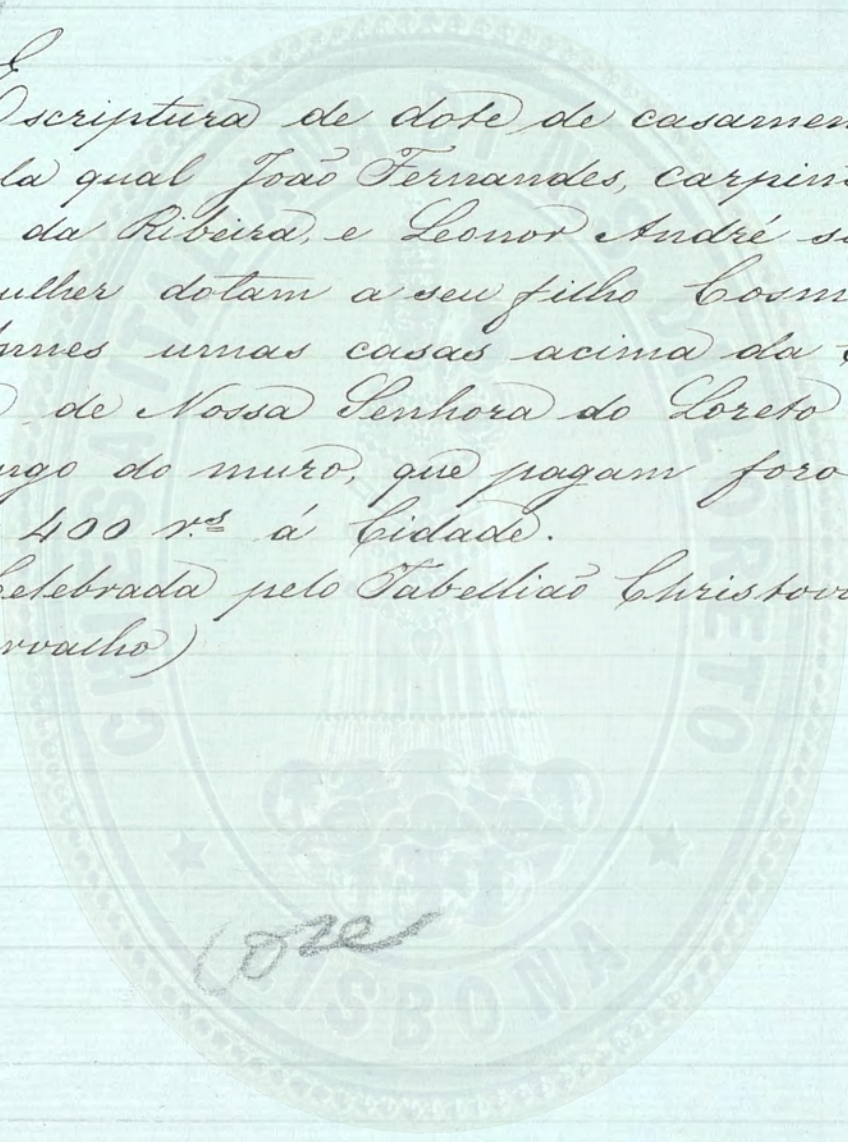 Escriptura de dote de casamen
la qual João Fernandes, carpin
da Ribeira, e Leonor André su
ulher dotam a seu filho Cosm
nnes umas casas acima da
de Nossa Senhora do Loreto
rgo do muro, que pagam foro
400 r.s á Cidade.
Celebrada pelo Tabellião Christov
rvalho)
CHIESA ITALIANA DI N. S. DI LORETO
LISBONA